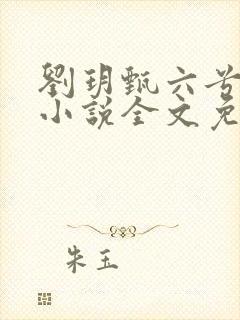 劉玥甄六岁
小說全文免
朱玉